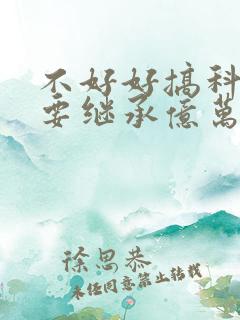 不好好搞科
要继承億萬
徐思恭
未经同意禁止转载